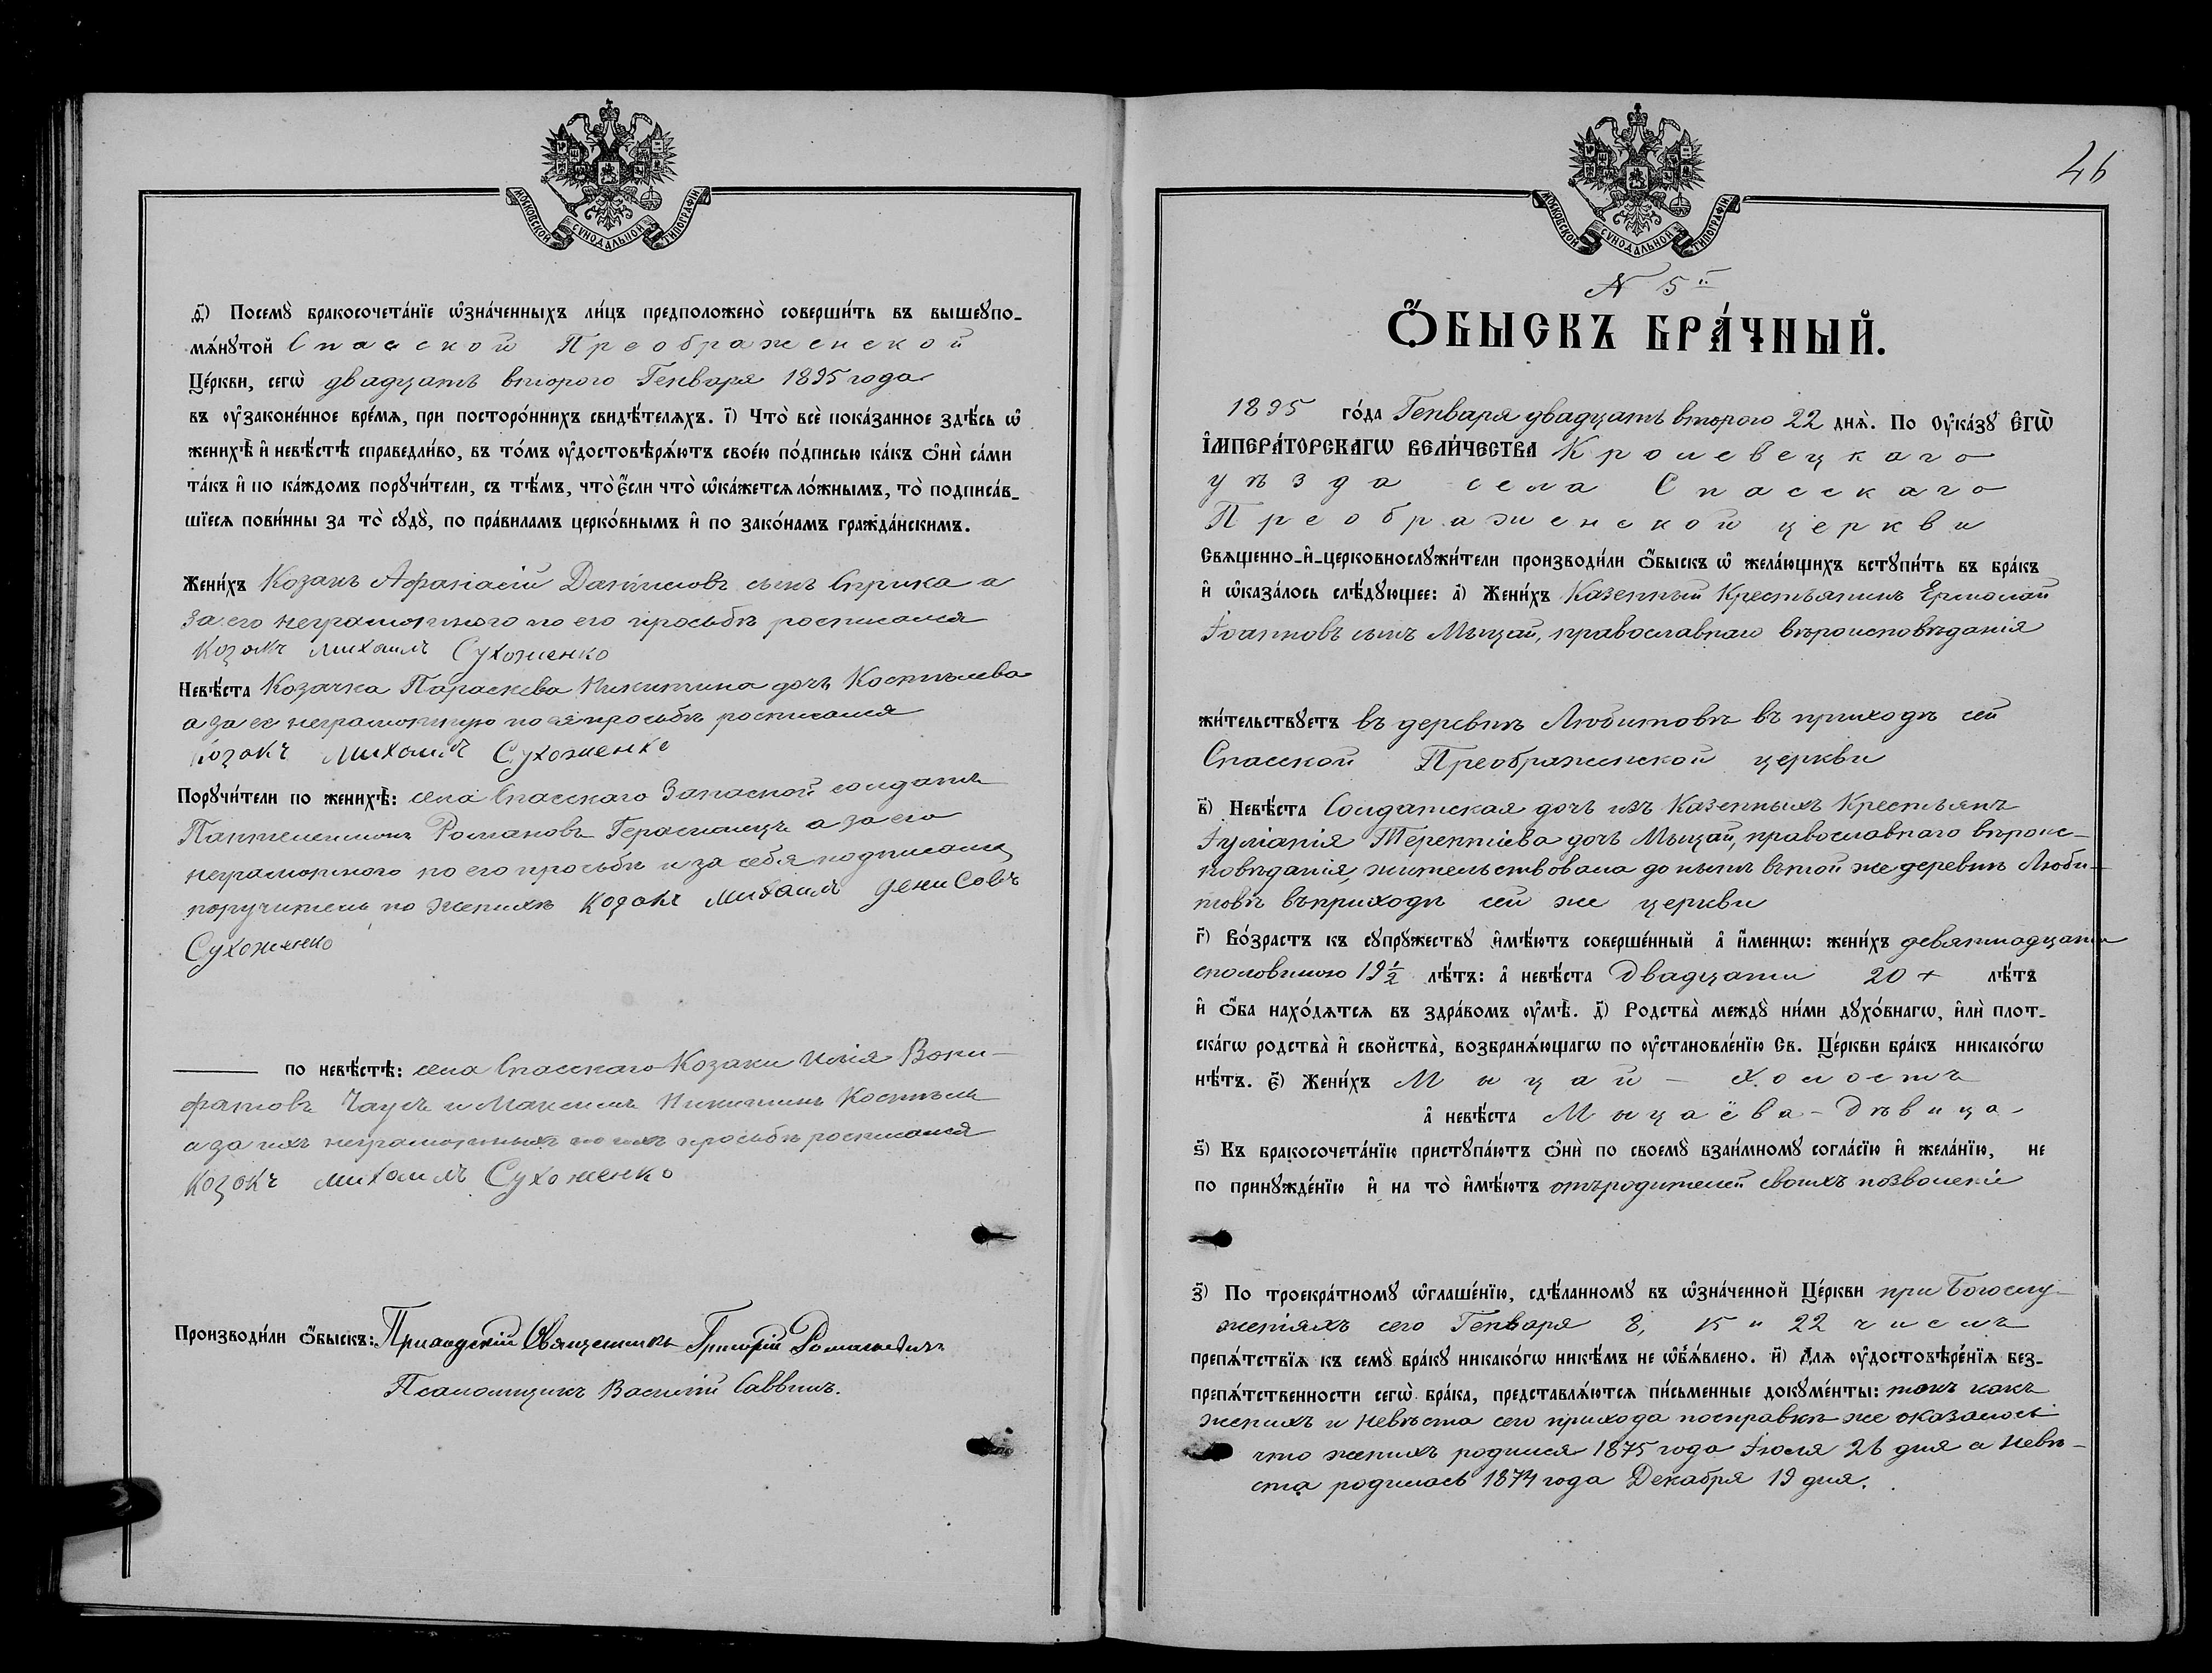 МОСКОВСКОЙ СУНОДАЛЬНОЙ ТИПОГРАФІИ
д҃) Посемꙋ̀ бракосочета́нїе ѡ҆зна́ченныхъ ли́цъ предположено̀ соверши́ть въ вышеꙋпо-
мѧ́нꙋтой Спасской Преображенской
Це́ркви, сегѡ̀ двадцать второго Генваря 1895 года
въ ᲂу҆законе́нное вре́мѧ, при посторо́ннихъ свидѣ́телѧхъ. і҃) Что̀ всѐ пока́занное здѣ́сь ѡ҆
женихѣ̀ и҆ невѣ́стѣ справедли́во, въ то́мъ ᲂу҆достовѣрѧ́ютъ свое́ю по́дписью ка́къ ѻ҆нѝ са́ми
та́къ и҆ по ка́ждомъ порꙋчи́тели, съ тѣ́мъ, что̀ є҆́сли что̀ ѡ҆ка́жетсѧ ло́жнымъ, то̀ подписа́в-
шїесѧ пови́нны за то̀ сꙋдꙋ̀, по пра́виламъ церко́внымъ и҆ по зако́намъ гражда́нскимъ.
Жени́хъ Козакъ Афанасій Даніиловъ сынъ Сприка а
за его неграмотного по его просьбѣ росписался
Козакъ Михаилъ Сухоженко
Невѣ́ста Козачка Параскева Никитина дочь Костылева
а за ее неграмотную по ея просьбѣ росписался
Козакъ Михаилъ Сухоженко
Порꙋчи́тели по женихѣ̀: села Спасского Запасной солдатъ
Пантелеимонъ Романовъ Герасимецъ а за его
неграмотного по его просьбѣ и за себя подписался
поручитель по женихѣ Козакъ Михаилъ Денисовъ
Сухоженко
по невѣ́стѣ: села Спасского Козаки Илія Вони-
фатовъ Чаусъ и Максимъ Никитинъ Костыль
а за ихъ неграмотныхъ по ихъ просьбѣ росписался
Козакъ Михаилъ Сухоженко
Производи́ли ѻ҆́быскъ: Приходскій Священникъ Григорій Романовичъ
Псаломщикъ Василій Саввинъ.
46
МОСКОВСКОЙ СУНОДАЛЬНОЙ ТИПОГРАФІИ
N 5й
Ѻ҆́БЫСКЪ БРА́ЧНЫЙ.
1895 го́да Генваря двадцать второго 22 днѧ̀. По Оу҆ка́зꙋ Є҆гѡ̀
І҆МПЕРА́ТОРСКАГѠ ВЕЛИ́ЧЕСТВА Кролевецкаго
уѣзда села Спасскаго
Преображенской церкви
Свѧщенно-и҆-церковнослꙋжи́тели производи́ли ѻ҆́быскъ ѡ҆ жела́ющихъ встꙋпи́ть въ бра́къ
и҆ ѡ҆каза́лось слѣ́дꙋющее: а҃) Жени́хъ Казенный Крестьянинъ Ермолай
Іоанновъ сынъ Мыцай, православнаго вѣроисповѣданія
жи́тельствꙋетъ въ деревнѣ Любитовѣ въ приходѣ сей
Спасской Преображенской церкви
в҃) Невѣ́ста Солдатская дочь изъ Казенныхъ Крестьянъ
Іуліанія Терентіева дочь Мыцай, православнаго вѣроис-
повѣданія, жительствовала до нынѣ въ той же деревнѣ Люби-
товѣ въ приходѣ сей же церкви
г҃) Во́зрастъ къ сꙋпрꙋ́жествꙋ и҆мѣ́ютъ соверше́нный а҆ и҆́меннѡ: жени́хъ девятнадцати
споловиною 19½ лѣ́тъ: а҆ невѣ́ста двадцати 20+ лѣ́тъ
и҆ ѻ҆́ба нахо́дѧтсѧ въ здра́вомъ ᲂу҆мѣ̀. д҃) Родства̀ междꙋ̀ ни́ми дꙋхо́внагѡ, и҆лѝ плот-
ска́гѡ родства̀ и҆ сво́йства̀, возбранѧ́ющагѡ по ᲂу҆становле́нїю Св. Це́ркви бра́къ никако́гѡ
нѣ́тъ. є҃) Жени́хъ Мыцай – холостъ
а҆ невѣ́ста Мыцаёва – Дѣвица.
ѕ҃) Къ бракосочета́нїю пристꙋпа́ютъ ѻ҆нѝ по своемꙋ̀ взаи́мномꙋ согла́сїю и҆ жела́нїю, не
по принꙋжде́нїю и҆ на то̀ и҆мѣ́ютъ отъ родителей своихъ позволеніе
з҃) По троекра́тномꙋ ѡ҆глаше́нїю, сдѣ́ланномꙋ въ ѡ҆зна́ченной Це́ркви при Богослу-
женіяхъ сего Генваря 8, 15 и 22 числъ
препѧ́тствїѧ къ семꙋ̀ бра́кꙋ никако́гѡ никѣ́мъ не ѡ҆б̾ѧ́влено. и҃) Длѧ ᲂу҆достовѣре́нїѧ без-
препѧ́тственности сегѡ̀ бра́ка, представлѧ́ютсѧ пи́сьменные докꙋме́нты: такъ какъ
женихъ и невѣста сего прихода посправкѣ же оказалось
что женихъ родился 1875 года Іюля 26 дня а невѣ-
ста родилась 1874 года Декабря 19 дня.